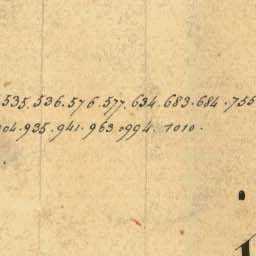 535. 536. 576. 577. 634. 683. 684. 755
04. 935. 941. 963. 994. 1010.